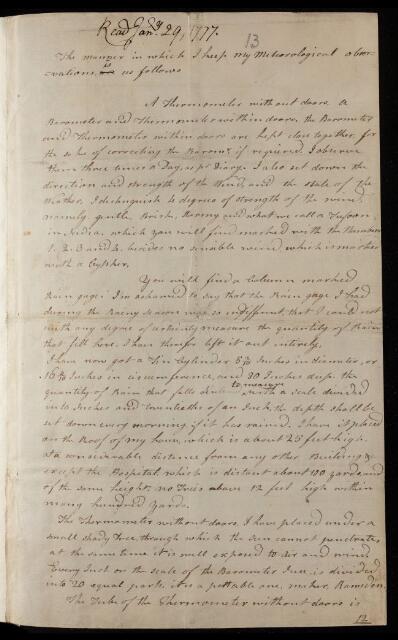 Read Jany. 29, 1777.
13
The manner in which I keep my Meteorological obser-
-vations, is as follows
A Thermometer without doors. A
Barometer and Thermometer within doors, the Barometer
and Thermometer within doors are kept close together, for
the sake of correcting the Barom: if required. I observe
them three times a Day, as pr Diary. I also set down the
direction and strength of the Wind, and the state of the
Weather. I distinguish 4 degrees of strength of the wind,
namely gentle, brisk, stormy and what we call a Tufoon,
in India, which you will find marked with the Numbers
1. 2. 3 and 4. besides no sensible wind, which is marked
with a Cypher.
You will find a Column marked
Rain gage: I'm ashamed to say that the Rain gage I had
during the Rainy season was so indifferent, that I could not
with any degree of certainty measure the quantity of Rain
that fell here. I have therefore left it out intirely.
I have now got a Tin Cylinder Inches in diameter, or
16 Inches in circumference, and 30 Inches deep. the
quantity of Rain that falls to measure with a scale divided
into Inches and twentieths of an Inch, the depth shall be
set down every morning if it has rained. I have it placed
on the Roof of my house, which is about 25 feet high,
at a considerable distance from any other Building
except the Hospital which is distant about yards and
of the same height, no Trees above 12 feet high within
many hundred yards.
The Thermometer without doors, I have placed under a
small shady tree, through which the sun cannot penetrate,
at the same time it is well exposed to Air and wind
Every Inch on the scale of the Barometer Tube is divided
into 20 equal parts. it is a portable one, maker, Ramsden.
The Tube of the Thermometer without doors is
12